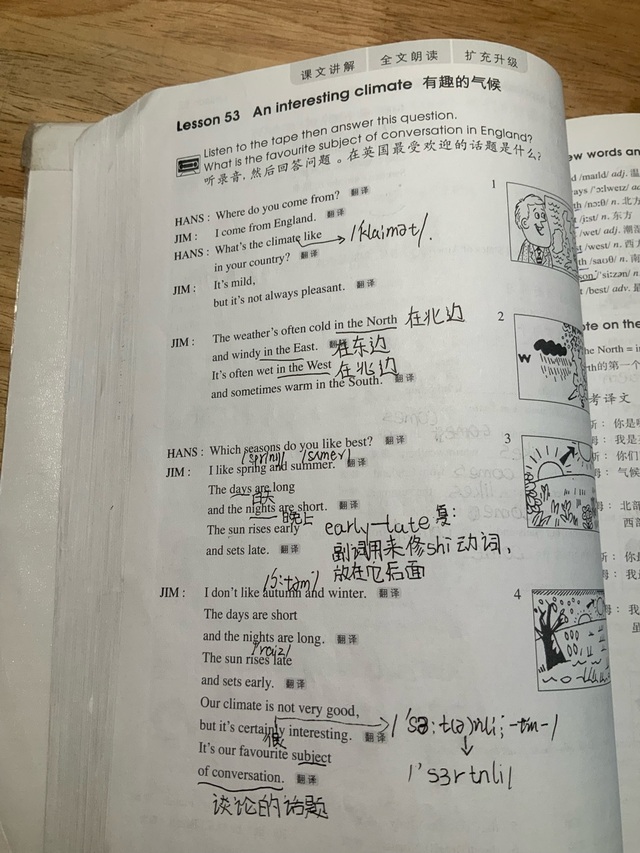 课文讲解 全文朗读 扩充升级
Lesson 53 An interesting climate 有趣的气候
Listen to the tape then answer this question.
What is the favourite subject of conversation in England?
听录音,然后回答问题。在英国最受欢迎的话题是什么?
HANS: Where do you come from? 翻译
JIM: I come from England. 翻译
HANS: What's the climate like /ˈklaimət/.
in your country? 翻译
JIM: It's mild,
but it's not always pleasant. 翻译
1
JIM: The weather's often cold in the North 在北边
and windy in the East. 翻译 在东边
It's often wet in the West 在北边
and sometimes warm in the South. 翻译
2
W
HANS: Which seasons do you like best? 翻译
JIM: I like spring and summer. 翻译
The days are long
白天
and the nights are short. 翻译
晚上
The sun rises early
and sets late. 翻译
early-late 复:
副词用来修shi动词,
放在它后面
3
JIM: I don't like autumn and winter. 翻译
/ɔ:təm/
The days are short
and the nights are long. 翻译
The sun rises late
/raiz/
and sets early. 翻译
4
Our climate is not very good,
but it's certainly interesting. 翻译
很
It's our favourite subject
of conversation. 翻译
谈论的话题
/ˈsɜ:t(ə)nli;-tin-/
/ˈsɜrtnli/
ew words an
/maild/ adj. 温
/'ɔ:lweiz/
/nɔ:θ/ n. 北方
/i:st/ n. 东方
/wet/ adj. 潮湿
/west/ n. 西
/sauθ/ n. 南
son /'si:zən/
/best/ adv. 最
ote on the
he North = in
rth的第一个
考译文